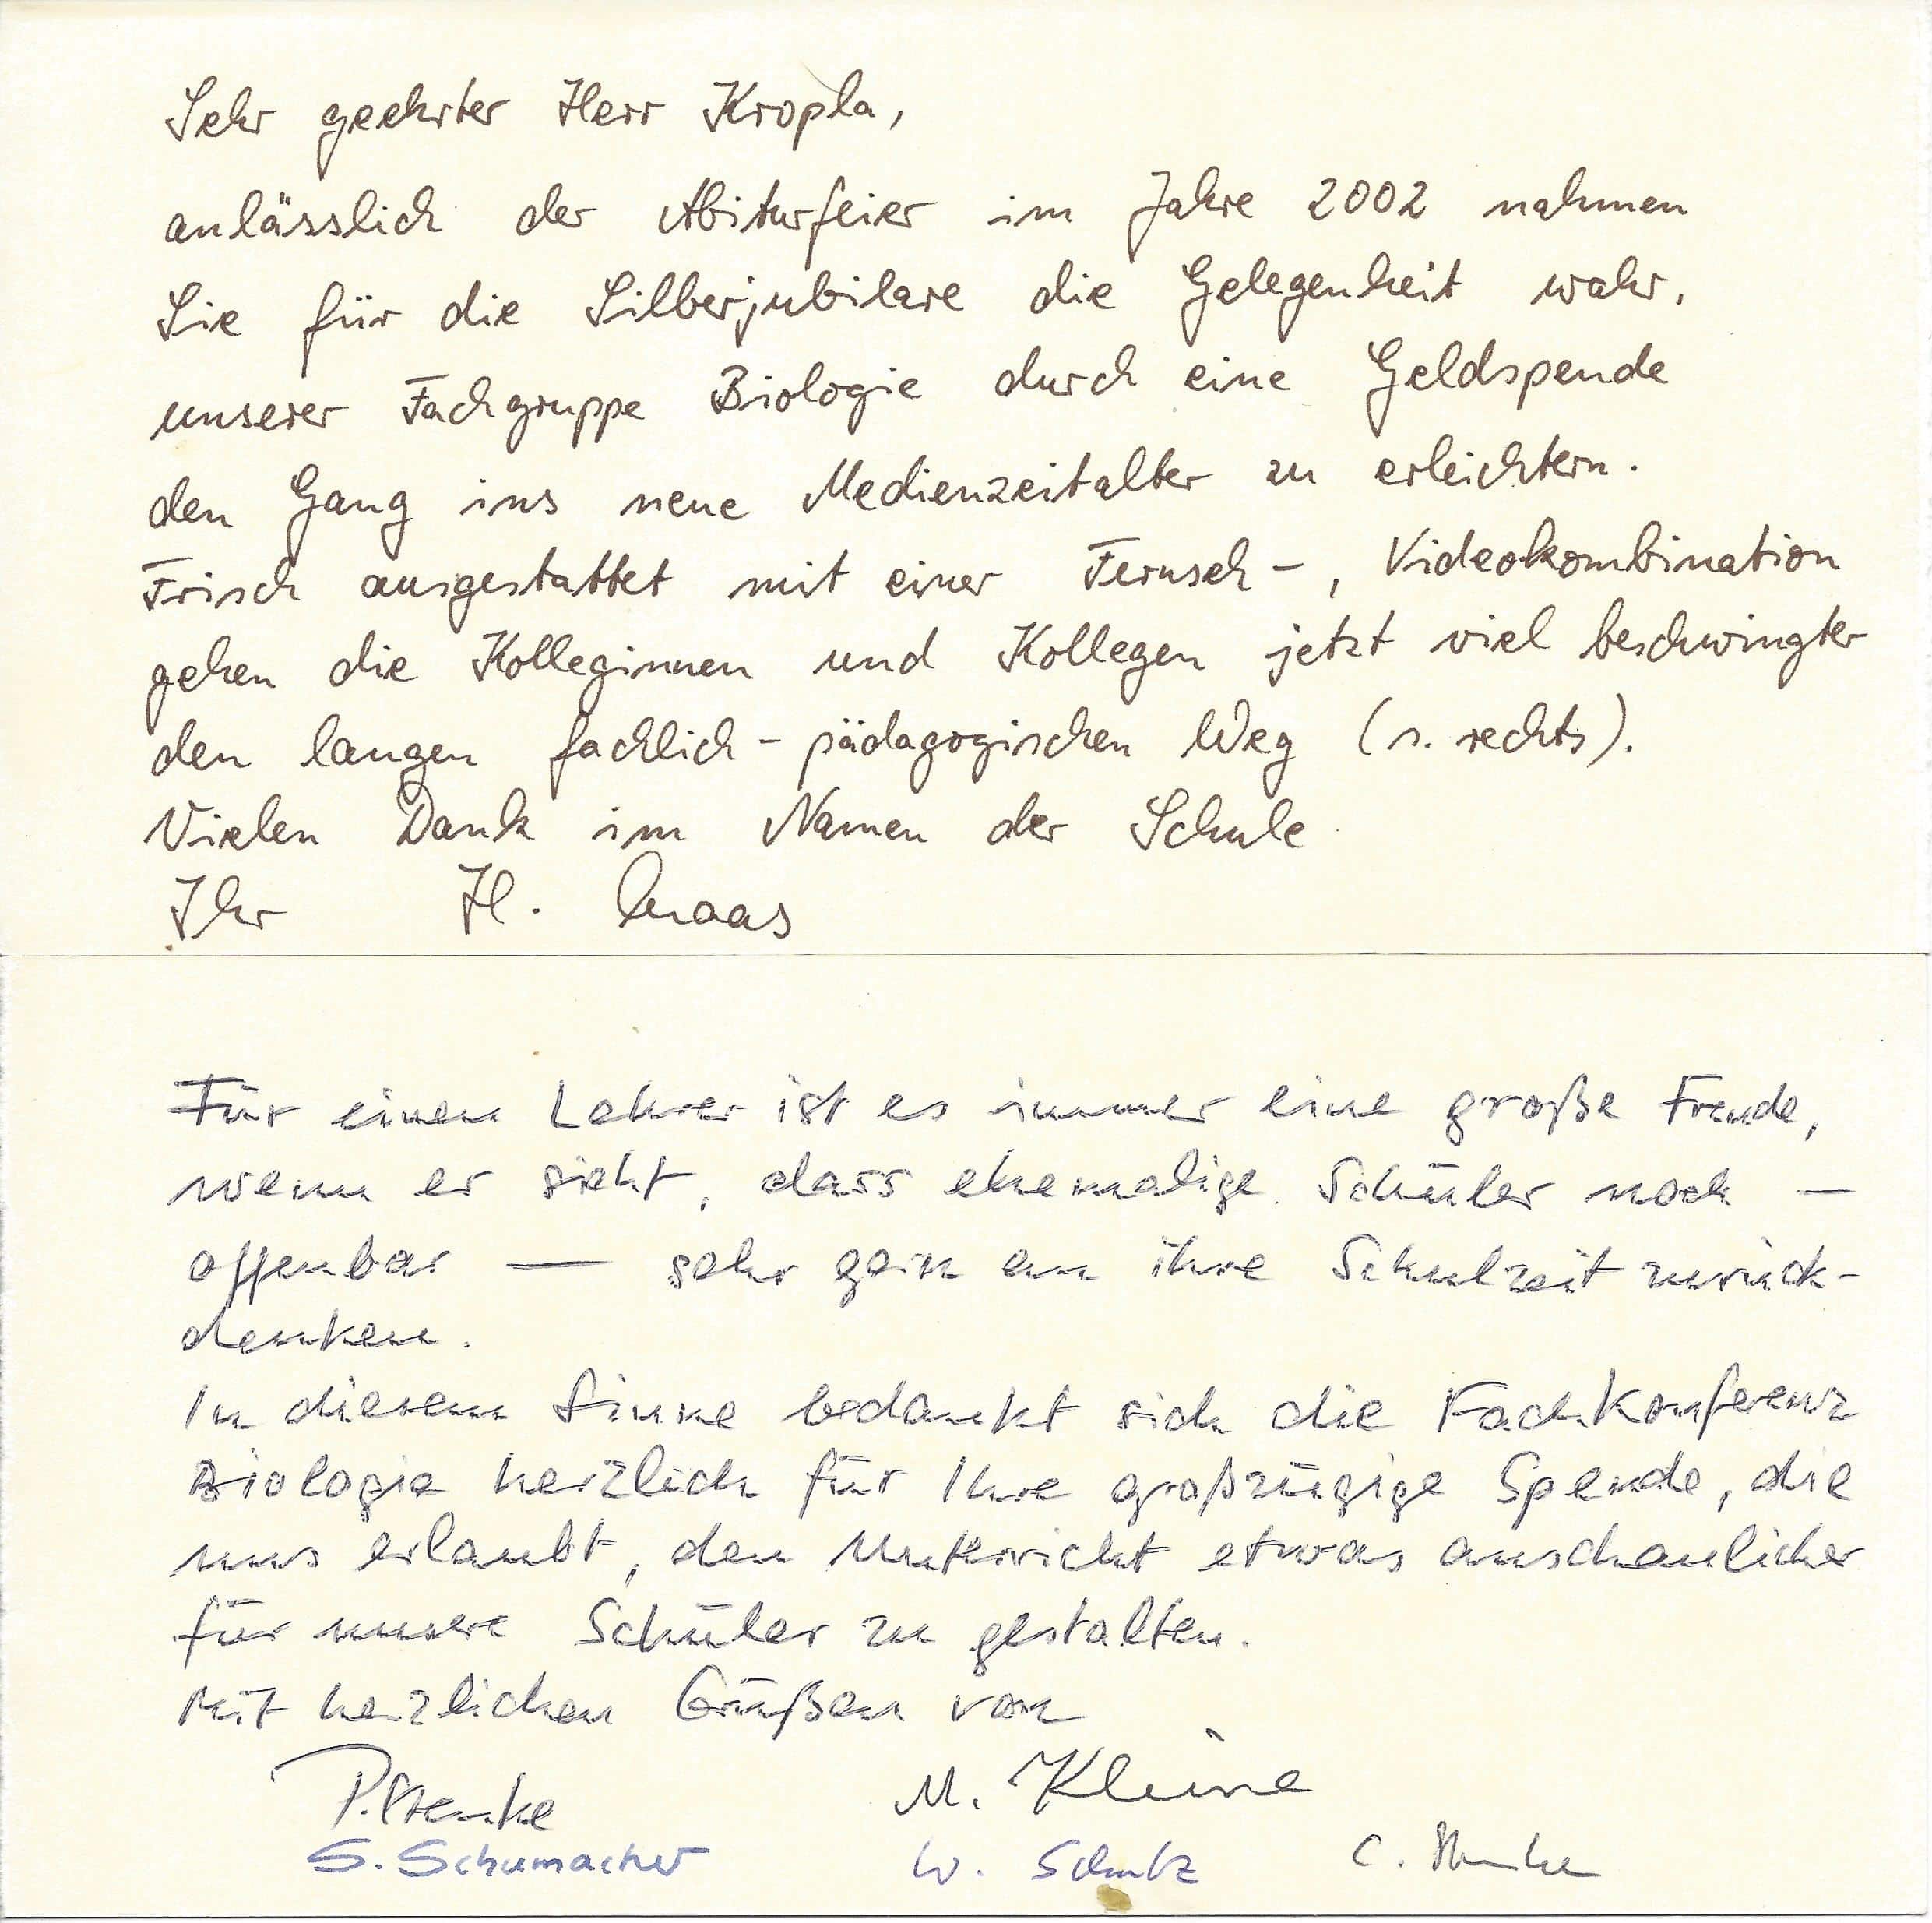 Sehr geehrter Herr Kropla,
anlässlich der Abiturfeier im Jahre 2002 nahmen
Sie für die Silberjubilare die Gelegenheit wahr,
unserer Fachgruppe Biologie durch eine Geldspende
den Gang ins neue Medienzeitalter zu erleichtern.
Frisch ausgestattet mit einer Fernseh-, Videokombination
gehen die Kolleginnen und Kollegen jetzt viel beschwingter
den langen fachlich-pädagogischen Weg (s. rechts).
Vielen Dank im Namen der Schule
Ihr H. Maas
Für einen Lehrer ist es immer eine große Freude,
wenn er sieht, dass ehemalige Schüler noch –
offenbar – sehr gern an ihre Schulzeit zurück-
denken.
In diesem Sinne bedankt sich die Fachkonferenz
Biologie herzlich für Ihre großzügige Spende, die
uns erlaubt, den Unterricht etwas anschaulicher
für unsere Schüler zu gestalten.
Mit herzlichen Grüßen von
P. M. Kleine
S. Schumacher W. Schulz C.